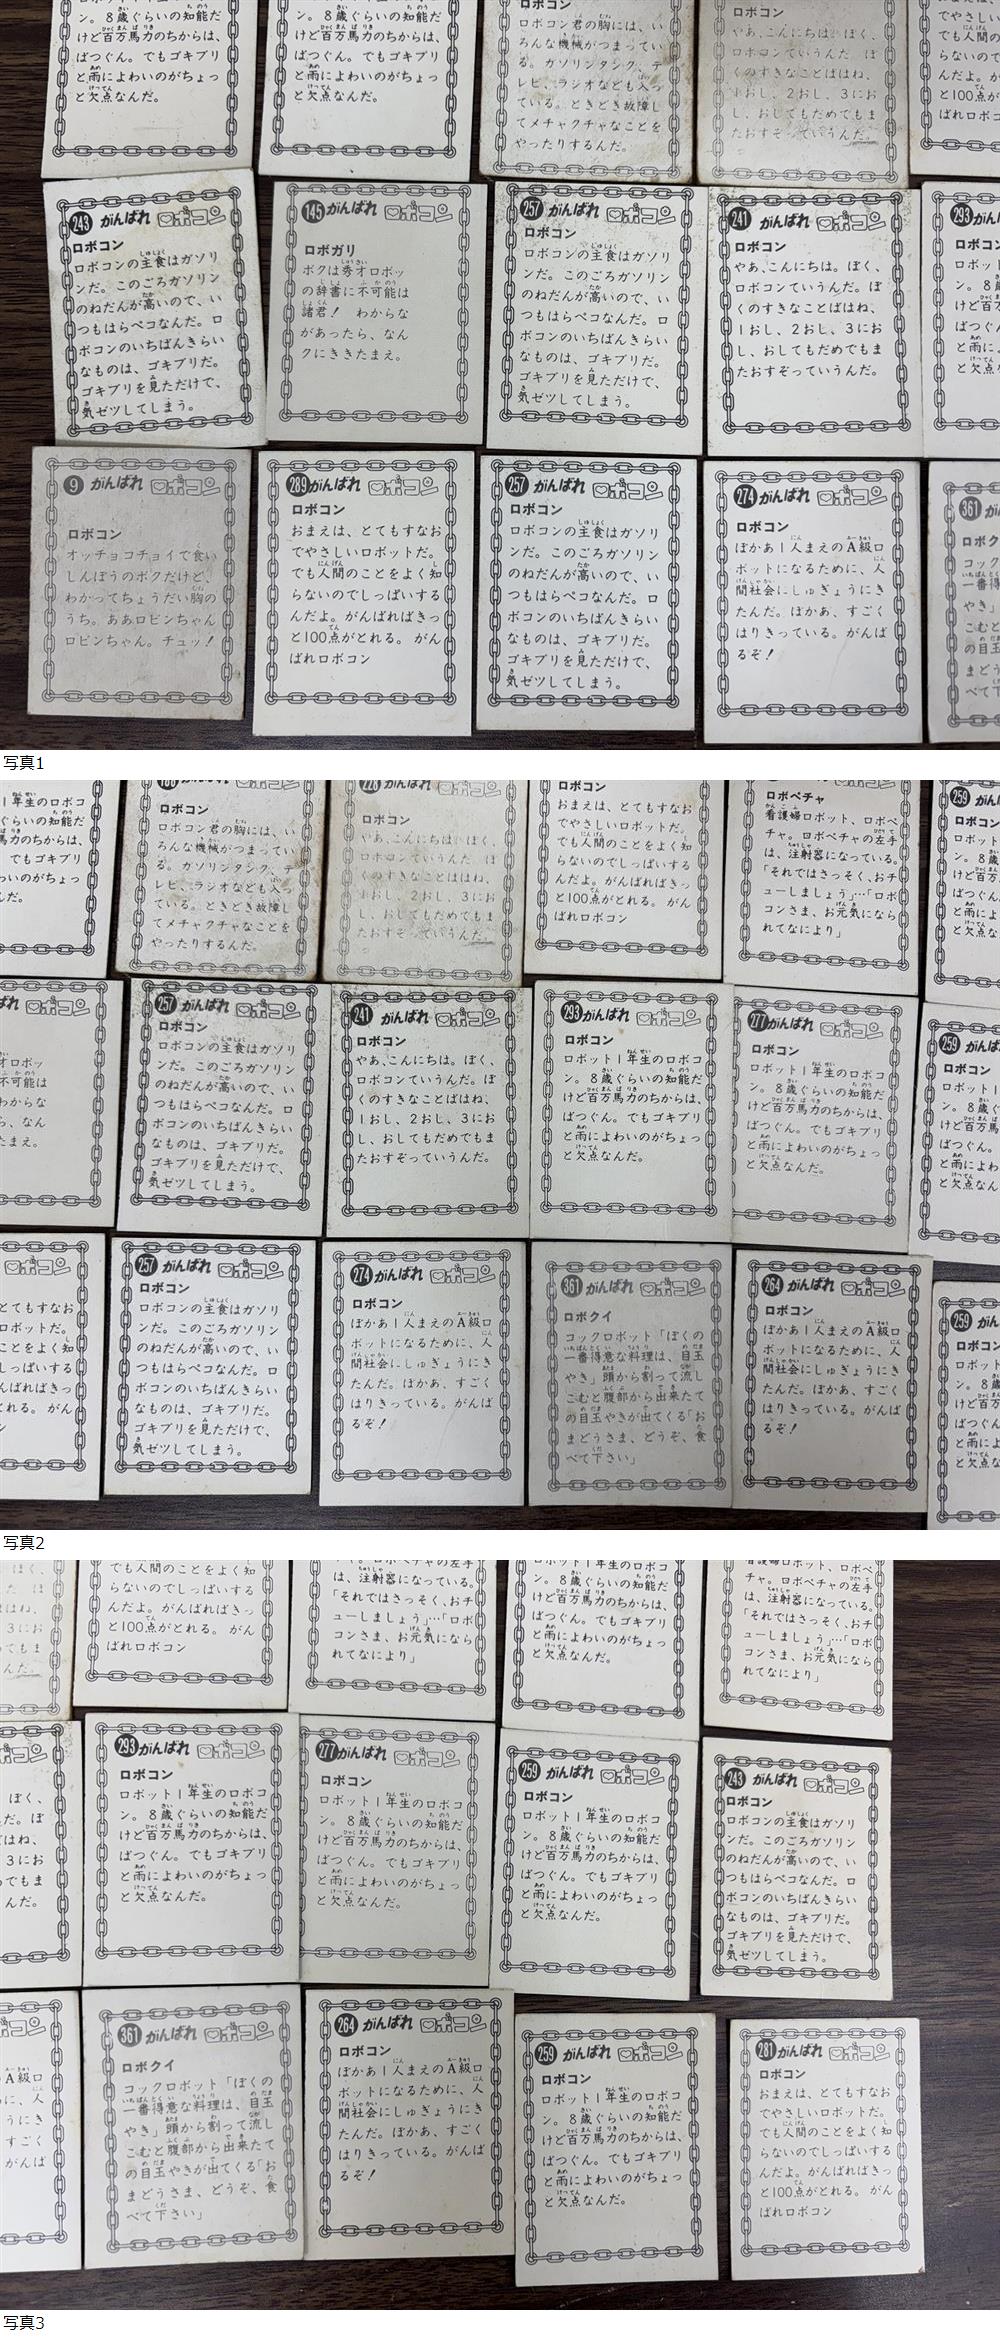 ン。8歳ぐらいの知能だ
けど百万馬力のちからは、
ばつぐん。でもゴキブリ
と雨によわいのがちょっ
と欠点なんだ。
ン。8歳ぐらいの知能だ
けど百万馬力のちからは、
ばつぐん。でもゴキブリ
と雨によわいのがちょっ
と欠点なんだ。
ロボコン
ロボコン君の胸には、い
ろんな機械がつまってい
る。ガソリンタンク、テ
レビ、ラジオなども入っ
ている。ときどき故障し
てメチャクチャなことを
やったりするんだ。
やあ、こんにちは。ぼく、
ロボコンていうんだ。ぼ
くのすきなことばはね、
1おし、2おし、3にお
し、おしてもだめでもま
たおすぞっていうんだ。
でやさしい
でも人間の
らないので
んだよ。が
と100点が
ばれロボコ
243 がんばれ ロボコン
ロボコン
ロボコンの主食はガソリ
ンだ。このごろガソリン
のねだんが高いので、い
つもはらペコなんだ。ロ
ボコンのいちばんきらい
なものは、ゴキブリだ。
ゴキブリを見ただけで、
気ゼツしてしまう。
145 がんばれ ロボコン
ロボガリ
ボクは秀才ロボッ
の辞書に不可能は
諸君! わからな
があったら、なん
クにききたまえ。
257 がんばれ ロボコン
ロボコン
ロボコンの主食はガソリ
ンだ。このごろガソリン
のねだんが高いので、い
つもはらペコなんだ。ロ
ボコンのいちばんきらい
なものは、ゴキブリだ。
ゴキブリを見ただけで、
気ゼツしてしまう。
241 がんばれ ロボコン
ロボコン
やあ、こんにちは。ぼく、
ロボコンていうんだ。ぼ
くのすきなことばはね、
1おし、2おし、3にお
し、おしてもだめでもま
たおすぞっていうんだ。
293 がん
ロボコン
ロボット
ン。8歳
けど百万
ばつぐん
と雨に
と欠点
9 がんばれ ロボコン
ロボコン
オッチョコチョイで食い
しんぼうのボクだけど、
わかってちょうだい胸の
うち。ああロビンちゃん
ロビンちゃん。チュッ!
289 がんばれ ロボコン
ロボコン
おまえは、とてもすなお
でやさしいロボットだ。
でも人間のことをよく知
らないのでしっぱいする
んだよ。がんばればきっ
と100点がとれる。がん
ばれロボコン
257 がんばれ ロボコン
ロボコン
ロボコンの主食はガソリ
ンだ。このごろガソリン
のねだんが高いので、い
つもはらペコなんだ。ロ
ボコンのいちばんきらい
なものは、ゴキブリだ。
ゴキブリを見ただけで、
気ゼツしてしまう。
274 がんばれ ロボコン
ロボコン
ぼかあ1人まえのA級ロ
ボットになるために、人
間社会にしゅぎょうにき
たんだ。ぼかあ、すごく
はりきっている。がんば
るぞ!
361 が
ロボク
コック
一番得
やき」
こむと
の目玉
まどう
べて下
写真1
1年生のロボコ
ぐらいの知能だ
馬力のちからは、
でもゴキブリ
わいのがちょっ
んだ。
ロボコン
ロボコン君の胸には、い
ろんな機械がつまってい
る。ガソリンタンク、テ
レビ、ラジオなども入っ
ている。ときどき故障し
てメチャクチャなことを
やったりするんだ。
ロボコン
やあ、こんにちは。ぼく、
ロボコンていうんだ。ぼ
くのすきなことばはね、
1おし、2おし、3にお
し、おしてもだめでもま
たおすぞっていうんだ。
ロボコン
おまえは、とてもすなお
でやさしいロボットだ。
でも人間のことをよく知
らないのでしっぱいする
んだよ。がんばればきっ
と100点がとれる。がん
ばれロボコン
ロボペチャ
看護婦ロボット、ロボペ
チャ。ロボペチャの左手
は、注射器になっている。
「それではさっそく、おチ
ューしましょう」…「ロボ
コンさま、お元気になら
れてなにより」
259 がん
ロボコン
ロボット
ン。8歳
けど百万
ばつぐん
と雨によ
と欠点な
ばれ ロボコン
オロボッ
不可能は
わからな
ら、なん
たまえ。
257 がんばれ ロボコン
ロボコン
ロボコンの主食はガソリ
ンだ。このごろガソリン
のねだんが高いので、い
つもはらペコなんだ。ロ
ボコンのいちばんきらい
なものは、ゴキブリだ。
ゴキブリを見ただけで、
気ゼツしてしまう。
241 がんばれ ロボコン
ロボコン
やあ、こんにちは。ぼく、
ロボコンていうんだ。ぼ
くのすきなことばはね、
1おし、2おし、3にお
し、おしてもだめでもま
たおすぞっていうんだ。
293 がんばれ ロボコン
ロボコン
ロボット1年生のロボコ
ン。8歳ぐらいの知能だ
けど百万馬力のちからは、
ばつぐん。でもゴキブリ
と雨によわいのがちょっ
と欠点なんだ。
277 がんばれ ロボコン
ロボコン
ロボット1年生のロボコ
ン。8歳ぐらいの知能だ
けど百万馬力のちからは、
ばつぐん。でもゴキブリ
と雨によわいのがちょっ
と欠点なんだ。
259 がん
ロボコン
ロボット1
ン。8歳ぐ
けど百万馬
ばつぐん。
と雨によわ
と欠点なん
とてもすなお
ロボットだ。
ことをよく知
しっぱいする
んばればきっ
とれる。がん
ン
257 がんばれ ロボコン
ロボコン
ロボコンの主食はガソリ
ンだ。このごろガソリン
のねだんが高いので、い
つもはらペコなんだ。ロ
ボコンのいちばんきらい
なものは、ゴキブリだ。
ゴキブリを見ただけで、
気ゼツしてしまう。
274 がんばれ ロボコン
ロボコン
ぼかあ1人まえのA級ロ
ボットになるために、人
間社会にしゅぎょうにき
たんだ。ぼかあ、すごく
はりきっている。がんば
るぞ!
361 がんばれ ロボコン
ロボクイ
コックロボット「ぼくの
一番得意な料理は、目玉
やき」頭から割って流し
こむと腹部から出来たて
の目玉やきが出てくる「お
まどうさま、どうぞ、食
べて下さい」
264 がんばれ ロボコン
ロボコン
ぼかあ1人まえのA級ロ
ボットになるために、人
間社会にしゅぎょうにき
たんだ。ぼかあ、すごく
はりきっている。がんば
るぞ!
259 がん
ロボコン
ロボット
ン。8歳
けど百万
ばつぐん
と雨によ
と欠点な
写真2
でも人間のことをよく知
らないのでしっぱいする
んだよ。がんばればきっ
と100点がとれる。がん
ばれロボコン
チャ。ロボペチャの左手
は、注射器になっている。
「それではさっそく、おチ
ューしましょう」…「ロボ
コンさま、お元気になら
れてなにより」
ロボット1年生のロボコ
ン。8歳ぐらいの知能だ
けど百万馬力のちからは、
ばつぐん。でもゴキブリ
と雨によわいのがちょっ
と欠点なんだ。
看護婦ロボット、ロボペ
チャ。ロボペチャの左手
は、注射器になっている。
「それではさっそく、おチ
ューしましょう」…「ロボ
コンさま、お元気になら
れてなにより」
ぼく、
だ。ぼ
はね、
3にお
でもま
んだ。
293 がんばれ ロボコン
ロボコン
ロボット1年生のロボコ
ン。8歳ぐらいの知能だ
けど百万馬力のちからは、
ばつぐん。でもゴキブリ
と雨によわいのがちょっ
と欠点なんだ。
277 がんばれ ロボコン
ロボコン
ロボット1年生のロボコ
ン。8歳ぐらいの知能だ
けど百万馬力のちからは、
ばつぐん。でもゴキブリ
と雨によわいのがちょっ
と欠点なんだ。
259 がんばれ ロボコン
ロボコン
ロボット1年生のロボコ
ン。8歳ぐらいの知能だ
けど百万馬力のちからは、
ばつぐん。でもゴキブリ
と雨によわいのがちょっ
と欠点なんだ。
243 がんばれ ロボコン
ロボコン
ロボコンの主食はガソリ
ンだ。このごろガソリン
のねだんが高いので、い
つもはらペコなんだ。ロ
ボコンのいちばんきらい
なものは、ゴキブリだ。
ゴキブリを見ただけで、
気ゼツしてしまう。
のA級ロ
に、人
うにき
すごく
がんば
361 がんばれ ロボコン
ロボクイ
コックロボット「ぼくの
一番得意な料理は、目玉
やき」頭から割って流し
こむと腹部から出来たて
の目玉やきが出てくる「お
まどうさま、どうぞ、食
べて下さい」
264 がんばれ ロボコン
ロボコン
ぼかあ1人まえのA級ロ
ボットになるために、人
間社会にしゅぎょうにき
たんだ。ぼかあ、すごく
はりきっている。がんば
るぞ!
259 がんばれ ロボコン
ロボコン
ロボット1年生のロボコ
ン。8歳ぐらいの知能だ
けど百万馬力のちからは、
ばつぐん。でもゴキブリ
と雨によわいのがちょっ
と欠点なんだ。
281 がんばれ ロボコン
ロボコン
おまえは、とてもすなお
でやさしいロボットだ。
でも人間のことをよく知
らないのでしっぱいする
んだよ。がんばればきっ
と100点がとれる。がん
ばれロボコン
写真3